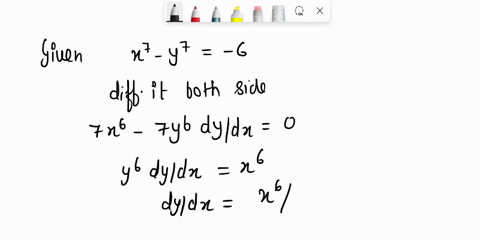 Given x⁷ - y⁷ = -6
diff. it both side
7x⁶ - 7y⁶ dy/dx = 0
y⁶ dy/dx = x⁶
dy/dx = x⁶/